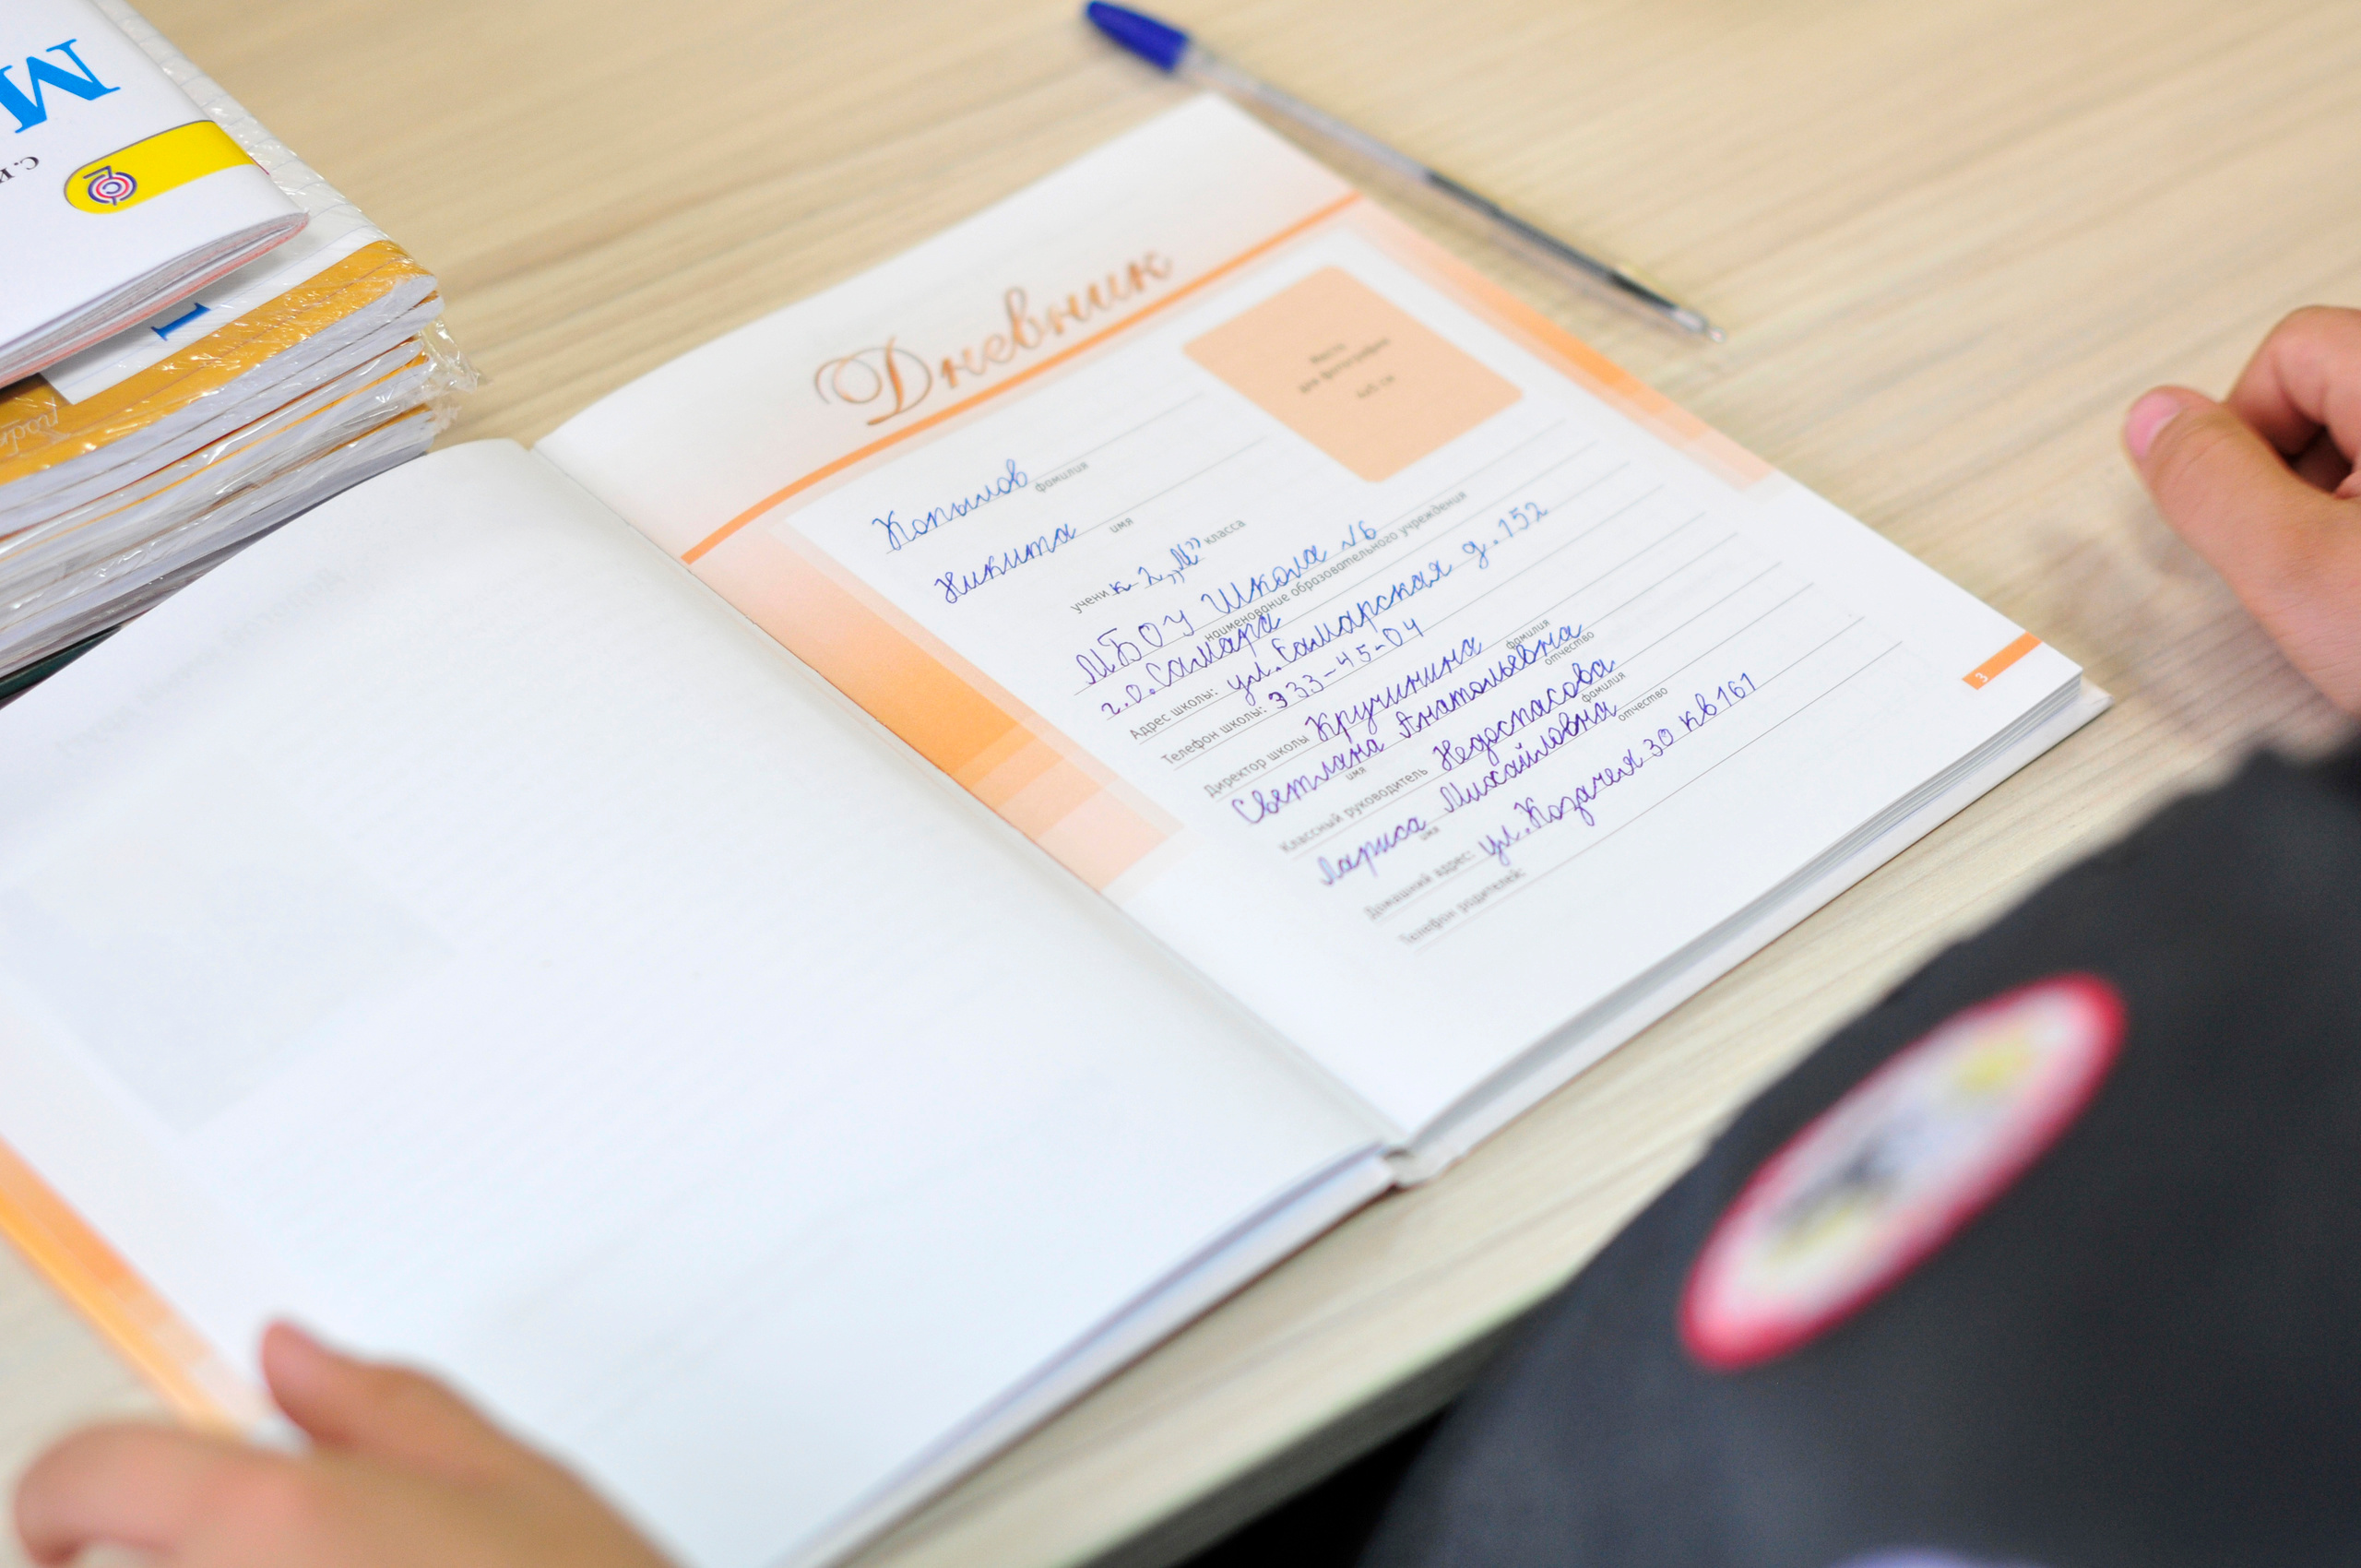 М
Дневник
Место
для фотографии
4x5 см
Копылов
фамилия
Никита
имя
ученик 2 „М” класса
МБОУ Школа №6
наименование образовательного учреждения
г.о. Самара
Адрес школы: ул. Самарская д. 152
Телефон школы: 333-45-04
Директор школы Кручинина
фамилия
Светлана Анатольевна
имя отчество
Классный руководитель Недоспасова
фамилия
Лариса Михайловна
имя отчество
Домашний адрес: ул. Козачея 30 кв 161
Телефон родителей:
3